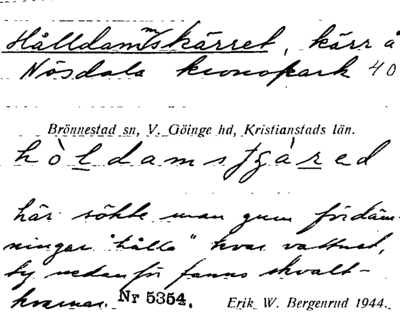 Hålldammskärret, kärr å
Nösdala kronopark 40
Brönnestad sn, V. Göinge hd, Kristianstads län.
här sökte man gum fördäm-
ningar "hålla" kvar vattnet,
ty nedanför fanns skvalt-
kvarnar. Nr 5354. Erik W. Bergenrud 1944.